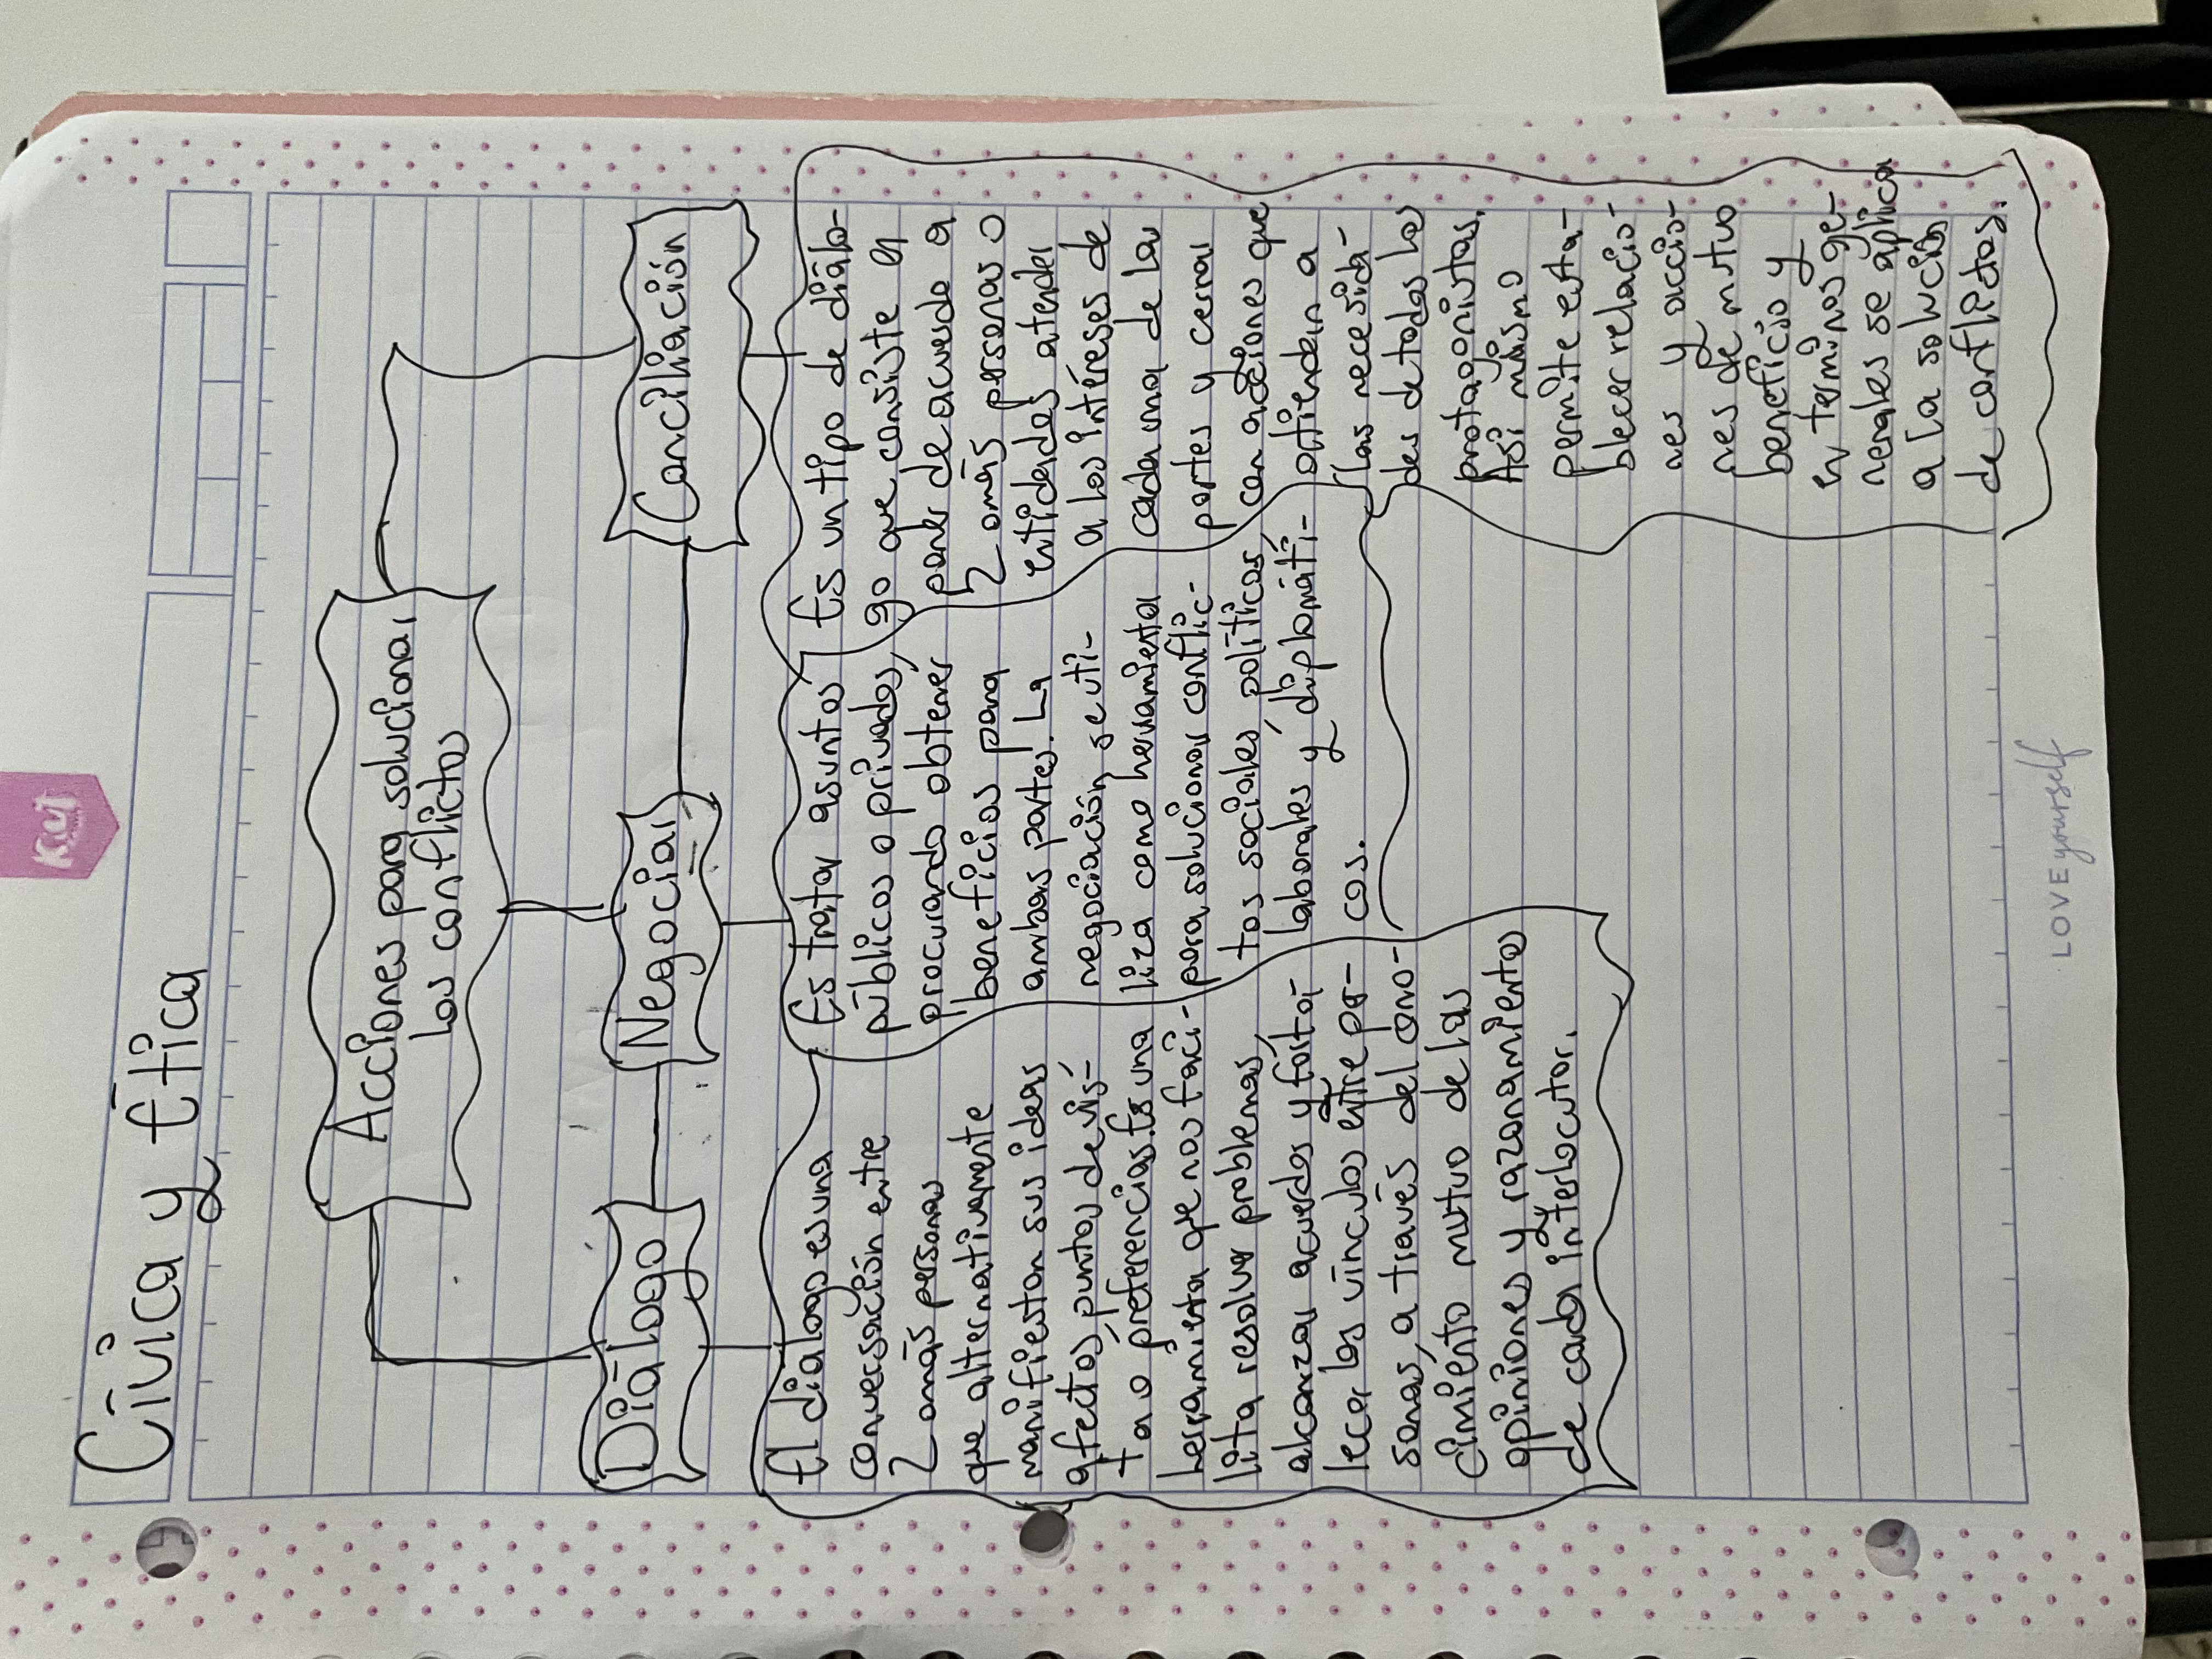 Kut
Cívica y Ética
Acciones para solucionar
los conflictos
Diálogo
Negociar
Conciliación
El dialogo es una
conversación entre
2 o más personas
que alternativamente
manifiestan sus ideas
afectos, puntos de vis-
ta o preferencias. Es una
herramienta que nos faci-
lita resolver problemas,
alcanzar acuerdos y forta-
lecer los vínculos entre per-
sonas, a través del cono-
cimiento mutuo de las
opiniones y razonamientos
de cada interlocutor.
Es tratar asuntos
públicos o privados,
procurando obtener
beneficios para
ambas partes. La
negociación se uti-
liza como herramienta
para solucionar conflic-
tos sociales, políticos,
laborales y diplomáti-
cos.
Es un tipo de diálo-
go que consiste en
poner de acuerdo a
2 o más personas o
entidades atender
a los intereses de
cada una de las
partes y cerrar
con acciones que
atiendan a
las necesida-
des de todos los
protagonistas.
Asi mismo
permite esta-
blecer relacio-
nes y accio-
nes de mutuo
beneficio y
en terminos ge-
nerales se aplica
a la solución
de conflictos.
LOVE yourself